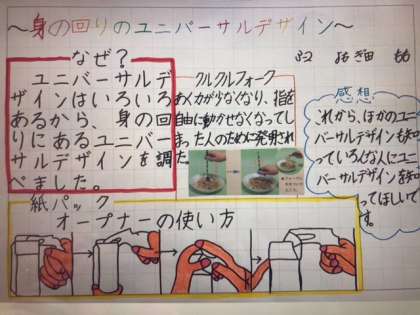 〜身の回りのユニバーサルデザイン〜
なぜ？
ユニバーサルデ
ザインはいろいろ
あるから、身の回
りにあるユニバー
サルデザインを調
べました。
クルクルフォーク
あく力が少なくなり、指を
自由に動かせなくなってし
まった人のために発明され
た
感想
これから、ほかのユニ
バーサルデザインも知
っていろんな人にユニ
バーサルデザインを知
ってほしいで
す。
紙パック
オープナーの使い方